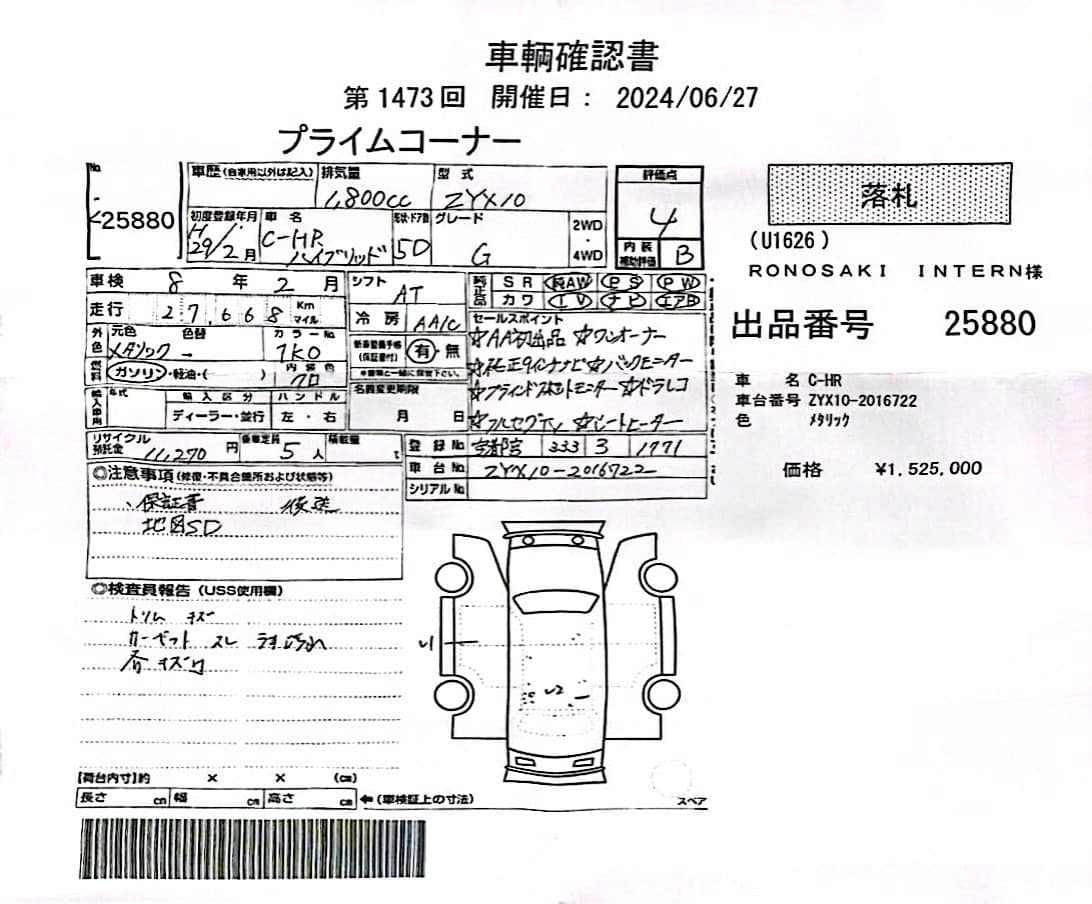 車輌確認書
第 1473 回 開催日： 2024/06/27
プライムコーナー
No.
25880
車歴(自家用以外は記入) 排気量 1,800cc 型式 ZYX10
評価点 4
初度登録年月 H29/2月 車名 C-HR ハイブリッド 形状・ドア数 5D グレード G 2WD・4WD
内装補助評価 B
落札
(U1626)
RONOSAKI INTERN様
出品番号 25880
車名 C-HR
車台番号 ZYX10-2016722
色 メタリック
価格 ¥1.525.000
車検 8 年 2 月 シフト AT
純正品 SR 純AW PS PW
カワ TV ナビ エアB
走行 27,668 Km マイル 冷房 AAC
外色 元色 メタリック 色替 → カラーNo. 1K0
燃料 ガソリン・軽油・( ) 内装色 クロ
新車整備手帳(保証書付) 有・無
名義変更期限 月 日
輸入車用 年式 輸入区分 ディーラー・並行 ハンドル 左・右
セールスポイント
☆AA初出品 ☆ワンオーナー
☆純正9インチナビ☆バックモニター
☆ブラインドスポットモニター☆ドラレコ
☆フルセグTV ☆シートヒーター
リサイクル預託金 11,270 円 乗車定員 5 人 積載量 t
登録No. 宇都宮 333 3 1771
車台No. ZYX10-2016722
シリアルNo.
◎注意事項(修復・不具合箇所および状態等)
保証書 後送
地図SD
◎検査員報告 (USS使用欄)
トリム キズ
カーペット スレ
各キズ凹
U1
U2
【荷台内寸】約 × × (cm)
長さ cm 幅 cm 高さ cm ←(車検証上の寸法)
スペア